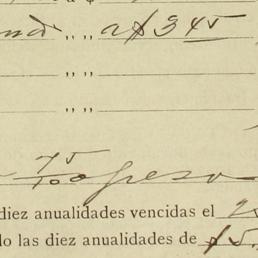 ,, ,, a $ 345
,, ,,
,, ,,
75/100 pesos
diez anualidades vencidas el
lo las diez anualidades de $ 5.